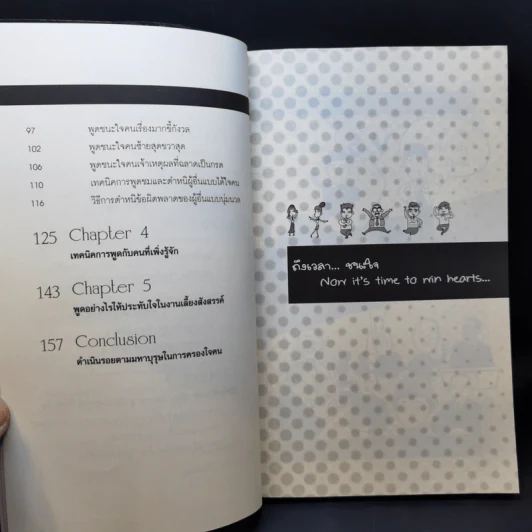 97 พูดชนะใจคนเรื่องมากขี้กังวล
102 วิธีชนะใจคนซ้ายสุดขวาสุด
106 พูดชนะใจคนเจ้าเหตุผลที่ฉลาดเป็นกรด
110 เทคนิคการพูดชมและตำหนิผู้อื่นแบบได้ใจคน
116 วิธีการตำหนิข้อผิดพลาดของผู้อื่นแบบนุ่มนวล
125 Chapter 4
เทคนิคการพูดกับคนที่เพิ่งรู้จัก
143 Chapter 5
พูดอย่างไรให้ประทับใจในงานเลี้ยงสังสรรค์
157 Conclusion
ดำเนินรอยตามมหาบุรุษในการครองใจคน
ถึงเวลา... ชนะใจ
Now it's time to win hearts...